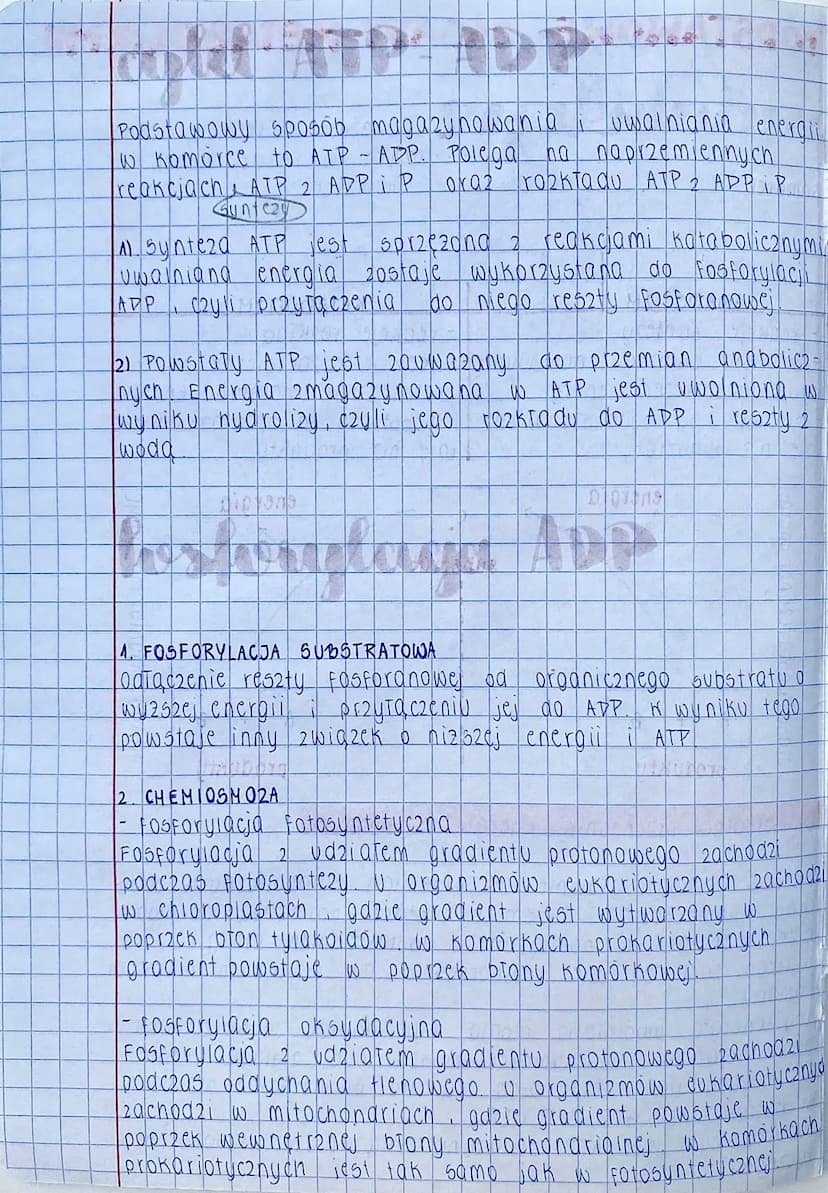 cykl ATP - ADP
Podstawowy sposób magazynowania i uwalniania energii
w komórce to ATP - ADP. Polega na naprzemiennych
reakcjach ATP z ADP i P oraz rozkładu ATP z ADP i P.
syntezy
1) Synteza ATP jest sprzężona z reakcjami katabolicznymi
uwalniana energia zostaje wykorzystana do fosforylacji
ADP, czyli przyłączenia do niego reszty fosforanowej.
2) Powstały ATP jest zauważany do przemian anabolicz-
nych. Energia zmagazynowana w ATP jest uwolniona w
wyniku hydrolizy, czyli jego rozkładu do ADP i reszty z
wodą
fosforylacja ADP
1. FOSFORYLACJA SUBSTRATOWA
Odłączenie reszty fosforanowej od organicznego substratu o
wyższej energii i przyłączeniu jej do ADP. W wyniku tego
powstaje inny związek o niższej energii i ATP
2. CHEMIOSMOZA
- fosforylacja fotosyntetyczna
Fosforylacja z udziałem gradientu protonowego zachodzi
podczas fotosyntezy. U organizmów eukariotycznych zachodzi
w chloroplastach, gdzie gradient jest wytwarzany w
poprzek błon tylakoidów. W komórkach prokariotycznych
gradient powstaje w poprzek błony komórkowej.
- fosforylacja oksydacyjna
Fosforylacja z udziałem gradientu protonowego zachodzi
podczas oddychania tlenowego. U organizmów eukariotycznyc
zachodzi w mitochondriach, gdzie gradient powstaje w
poprzek wewnętrznej błony mitochondrialnej. W komórkach
prokariotycznych jest tak samo jak w fotosyntetycznej.